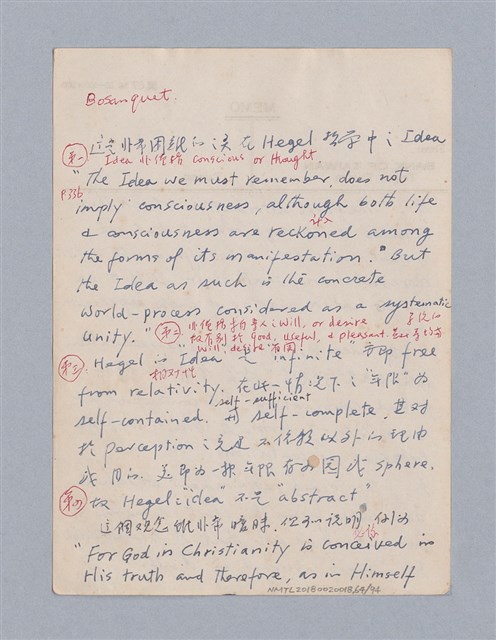 Bosanquet.
這是非常困難的，是在 Hegel 哲學中之 Idea
第一 Idea 非僅指 conscious or thought
P.336 "The Idea we must remember, does not
imply consciousness, although both life
& consciousness are reckoned among
the forms of its manifestation." But
the Idea as such is the concrete
world-process considered as a systematic
unity."
第二 非僅指 will, or desire
故有別於 Good, useful, & pleasant
will, desire 有因!
第三 Hegel Idea infinite 亦即 free
相對性
from relativity. 在此一情況下之"無限"為
self-sufficient
self-contained. 或 self-complete. 其對
於 perception 之 不依賴以外的理由
或目的. 因此 sphere.
第四 故 Hegel "idea" 不是 "abstract"
這個觀念雖非常曖昧, 但 說明, 例如
"For God in Christianity is conceived in
His truth and therefore, as in Himself
NMTL20180020018/64/94